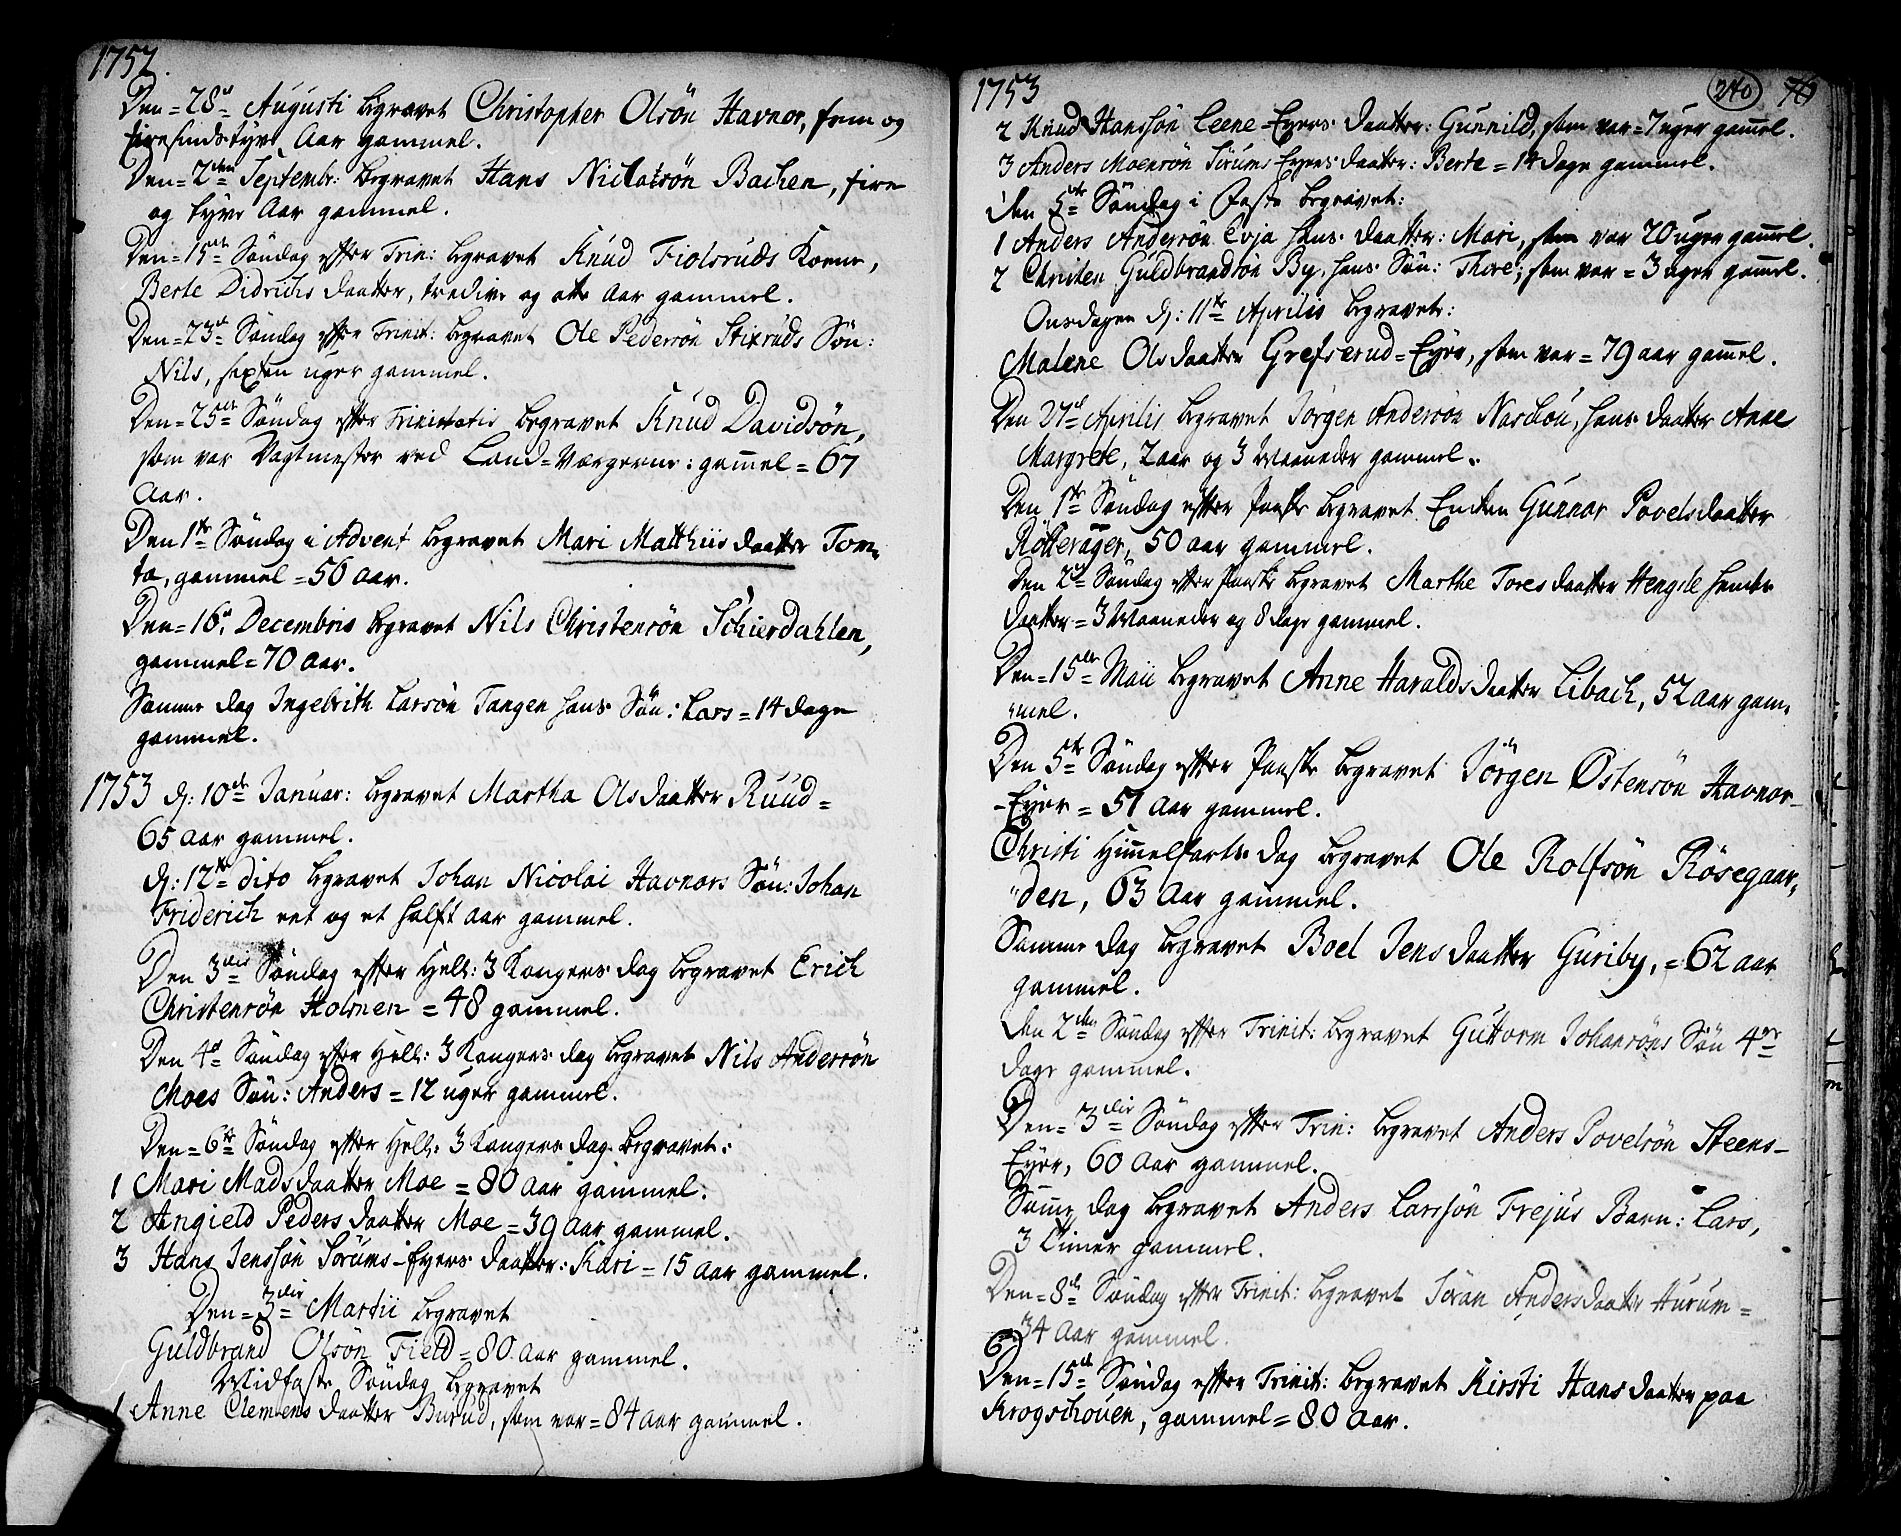 1752.
Den = 28de Augusti begravet Christopher Olsön Havnor, fem og
firesindstyve Aar gammel.
Den = 2den Septembr: begravet Hans Niclaisön Bachen, fire
og tyve Aar gammel.
Den = 15de Söndag efter Trin: begravet Knud Fiolsruds Kone,
Berte Didrichs daatter, tredive og otte Aar gammel.
Den = 23de Söndag efter Trinit: begravet Ole Pedersön Stixruds Sön:
Nils, sexten uger gammel.
Den = 25de Söndag efter Trinitatis begravet Knud Davidsön,
som var Vagtmester ved Land-Værgerne: gam̄el = 67
Aar.
Den 1te Söndag i Advent begravet Mari Matthiis daatter Tom-
ta, gammel = 56 Aar.
Den = 16de Decembris begravet Nils Christensön Schierdahlen,
gammel = 70 Aar.
Samme dag Ingebrith Larsön Tangen hans Sön: Lars = 14 dage
gammel.
1753 d: 10de Januar: begravet Martha Olsdaatter Ruud =
65 Aar gammel.
d: 12te dito begravet Johan Nicolai Havnors Sön: Johan
Friderich eet og et halft aar gammel.
Den 3die Söndag efter Hell: 3 Kongers dag begravet Erich
Christensön Holmen = 48 gammel.
Den 4de Söndag efter Hell: 3 Kongers dag begravet Nils Andersön
Moes Sön: Anders = 12 uger gammel.
Den = 6te Söndag efter Hell: 3 Kongers dag begravet:
1 Mari Madsdaatter Moe = 80 Aar gammel.
2 Angield Peders daatter Moe = 39 Aar gammel.
3 Hans Jenssön Sörums-Eyers daatter: Kari = 15 Aar gammel.
Den = 3die Martii begravet
Guldbrand Olsön Field = 80 Aar gammel.
Midfaste Söndag begravet
1 Anne Clemens daatter Burud, som var = 84 Aar gammel.
1753
240
2 Knud Hanssön Leene-Eyers daatter: Gunnild, som var = 7 uger gam̄el.
3 Anders Moensön Sörums Eyers daatter: Berte = 14 dage gammel.
den 5te Söndag i Faste begravet:
1 Anders Andersön Evja hans daatter: Mari, som var 20 uger gam̄el.
2 Christen Guldbrandsön By, hans Sön: Thore, som var = 3 uger gam̄el.
Onsdagen d: 11te Aprilis begravet:
Malene Olsdaatter Grefserud-Eyer, som var = 79 aar gam̄el.
Den 27de Aprilis begravet Jörgen Andersön Narschou, hans daatter Anne
Margrete, 2 aar og 3 Maaneder gammel.
Den 1te Söndag efter Paaske begravet Enken Gunnor Povelsdaatter
Rötterager, 50 aar gammel.
Den 2den Söndag efter Paaske begravet Marthe Toresdaatter Hengsle hendes
daatter = 3 Maaneder og 8 dage gammel.
Den = 15de Maii begravet Anne Haralds daatter Libach, 52 aar gam-
mel.
Den 5te Söndag efter Paaske begravet Jörgen Ostensön Havnor-
-Eyer = 51 Aar gammel.
Christi Him̄elfarts dag begravet Ole Rolfsön Rösegaar-
den, 63 Aar gammel.
Samme dag begravet Boel Jens daatter Guriby, = 62 aar
gammel.
den 2den Söndag efter Trinit: begravet Guttorm Johansöns Sön 4er
dage gammel.
Den = 3die Söndag efter Trin: begravet Anders Povelsön Steens-
Eyer, 60 Aar gammel.
Sam̄e dag begravet Anders Larssön Frejus Barn: Lars,
3 Timer gammel.
Den = 8de Söndag efter Trinit: begravet Joran Andersdaatter Hurum =
34 Aar gammel.
Den = 15de Söndag efter Trinit: begravet Kirsti Hans daatter paa
Krogschouen, gammel = 80 Aar.